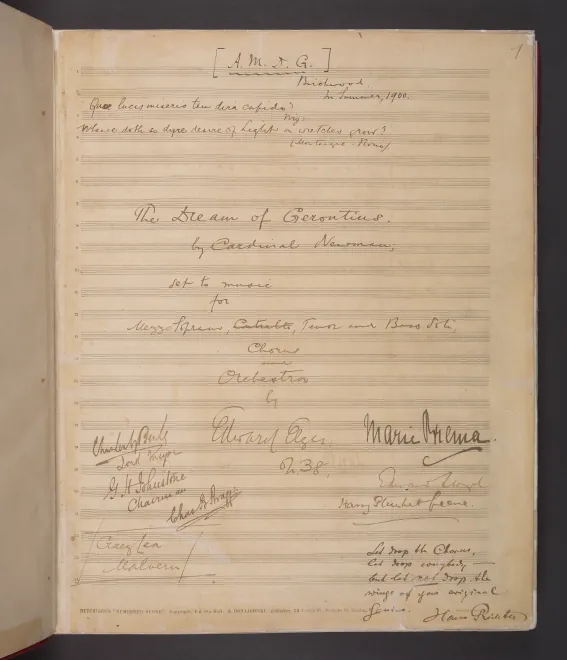 1
[A. M. D. G.]
Birchwood.
In Summer, 1900.
Quae lucis miseris tam dira cupido?
Virg:
Whence doth so dyre desire of Light on wretches grow?
(Montaigne - Florio)
The Dream of Gerontius.
by Cardinal Newman;
set to music
for
Mezzo Soprano, Tenor and Bass Soli,
Chorus
and
Orchestra
by
Edward Elgar
Op 38,
Lord Mayor
G H Johnstone
Chairman
Craeg Lea
Malvern
Marie Brema.
Edward Lloyd
Harry Plunket Greene.
Let drop the Chorus,
let drop everybody —
but let not drop the
wings of your original
genius.
Hans Richter